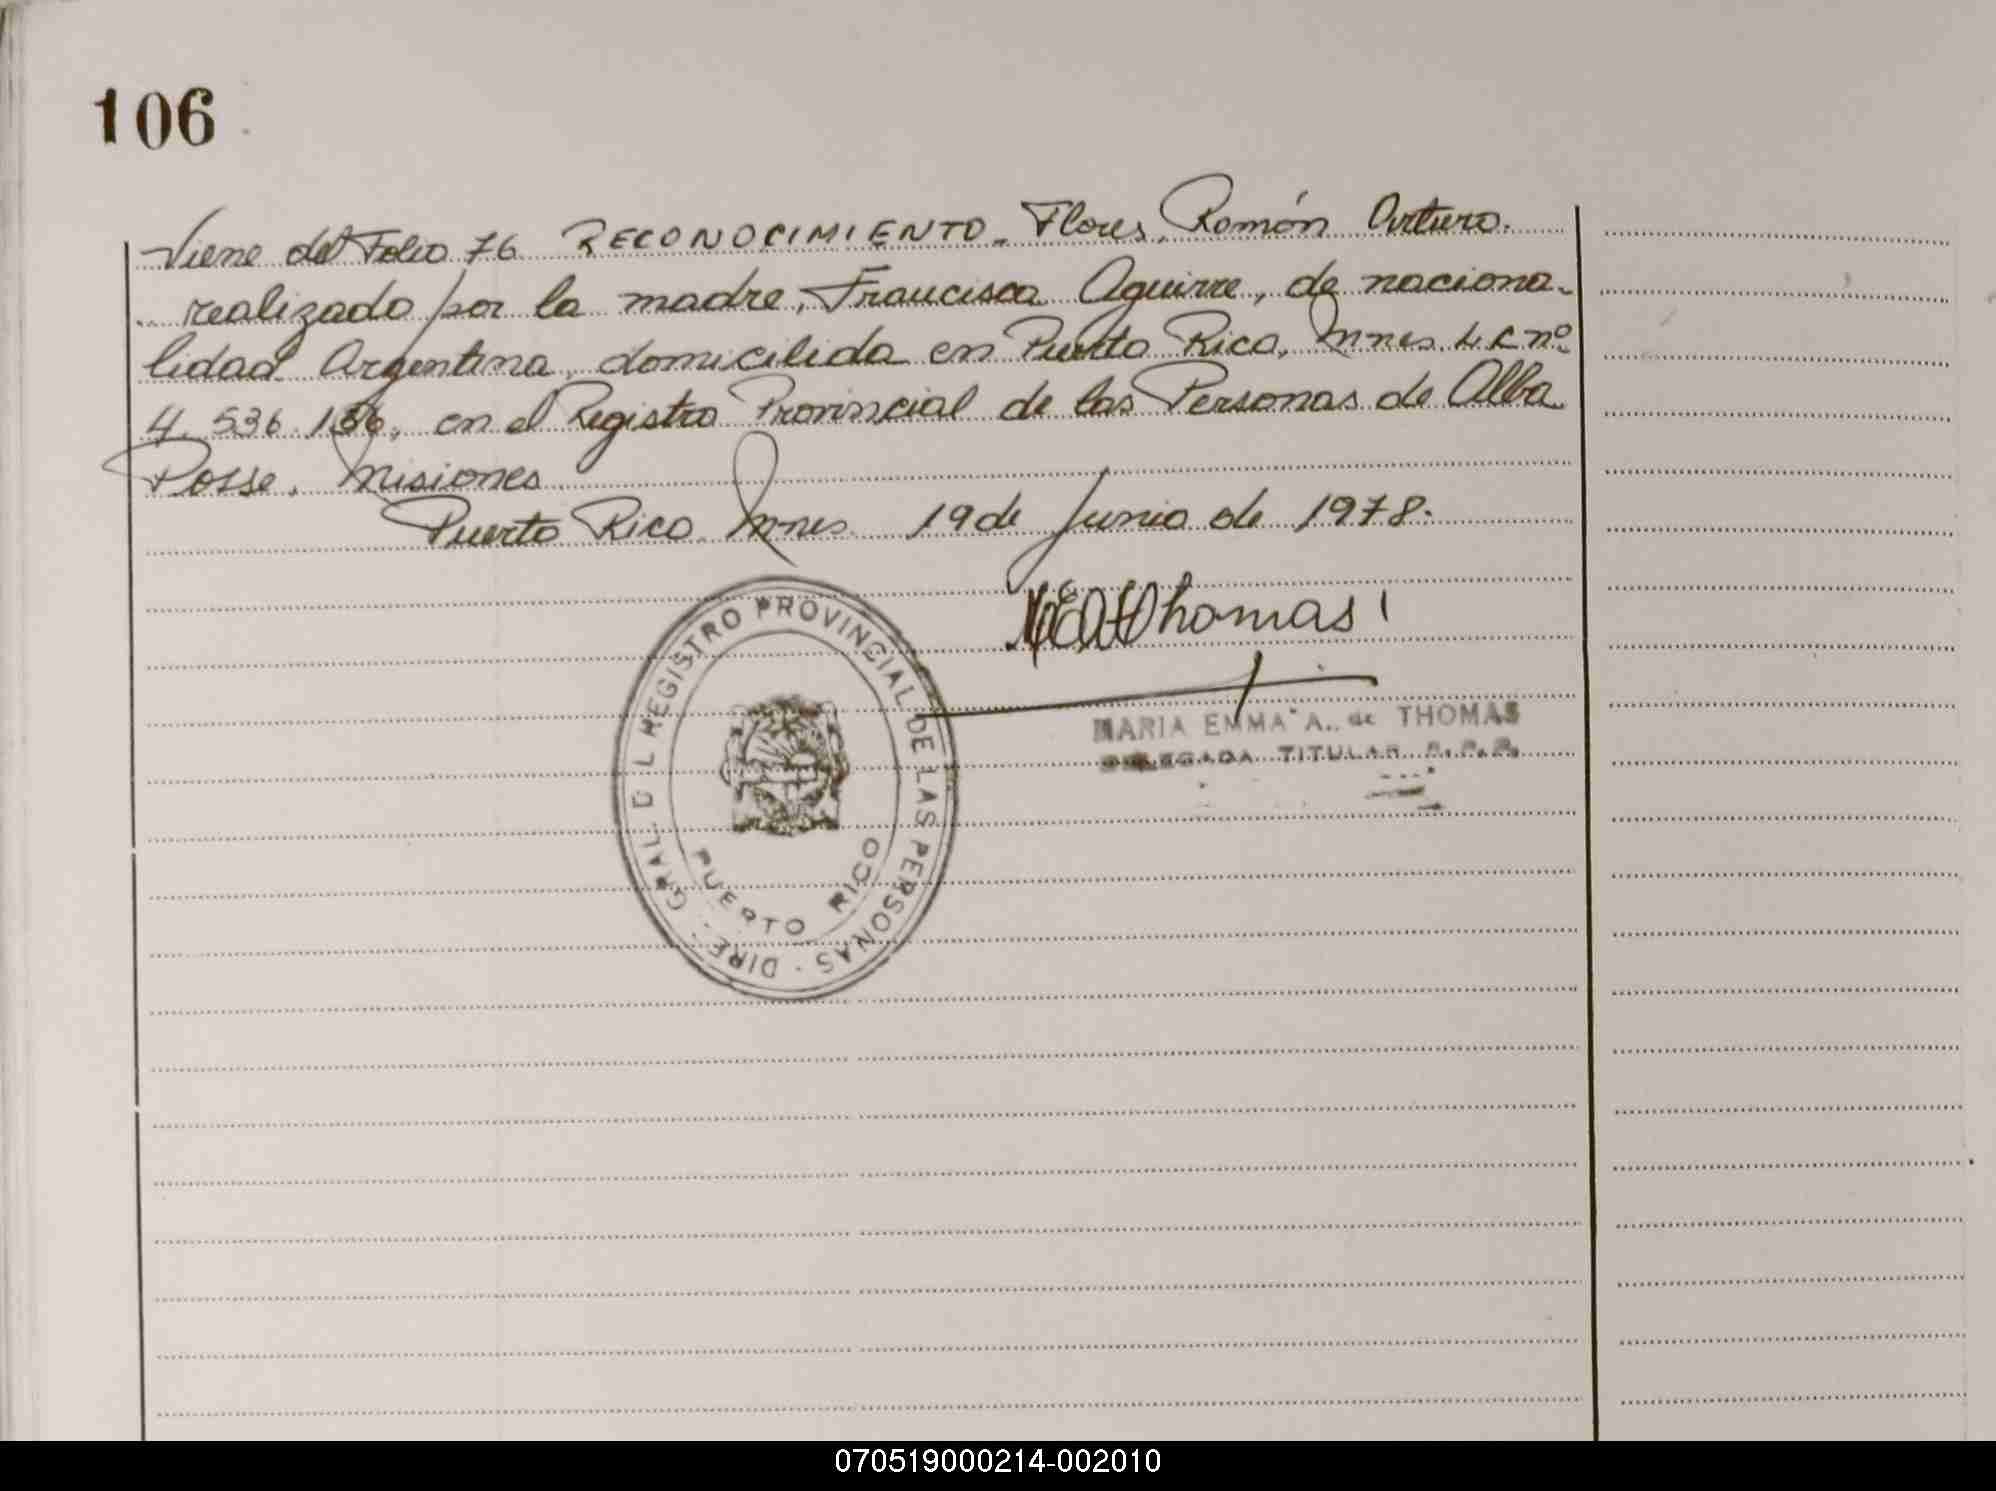 106
Viene del Folio 76 RECONOCIMIENTO. Flores, Román Arturo.
realizado por la madre, Francisca Aguirre, de naciona-
lidad Argentina, domicilida en Puerto Rico, Mnes. L.C nº
4.536.136, en el Registro Provincial de las Personas de Alba
Posse, Misiones
Puerto Rico Mnes. 19 de Junio de 1978.
Thomas
MARIA EMMA A. de THOMAS
DELEGADA TITULAR R.P.P.
DIRE. GRAL. D L REGISTRO PROVINCIAL DE LAS PERSONAS
PUERTO RICO
070519000214-002010